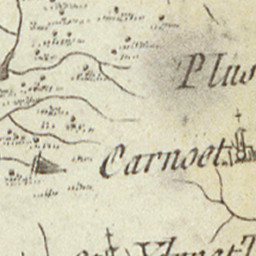 Plus
Carnoet